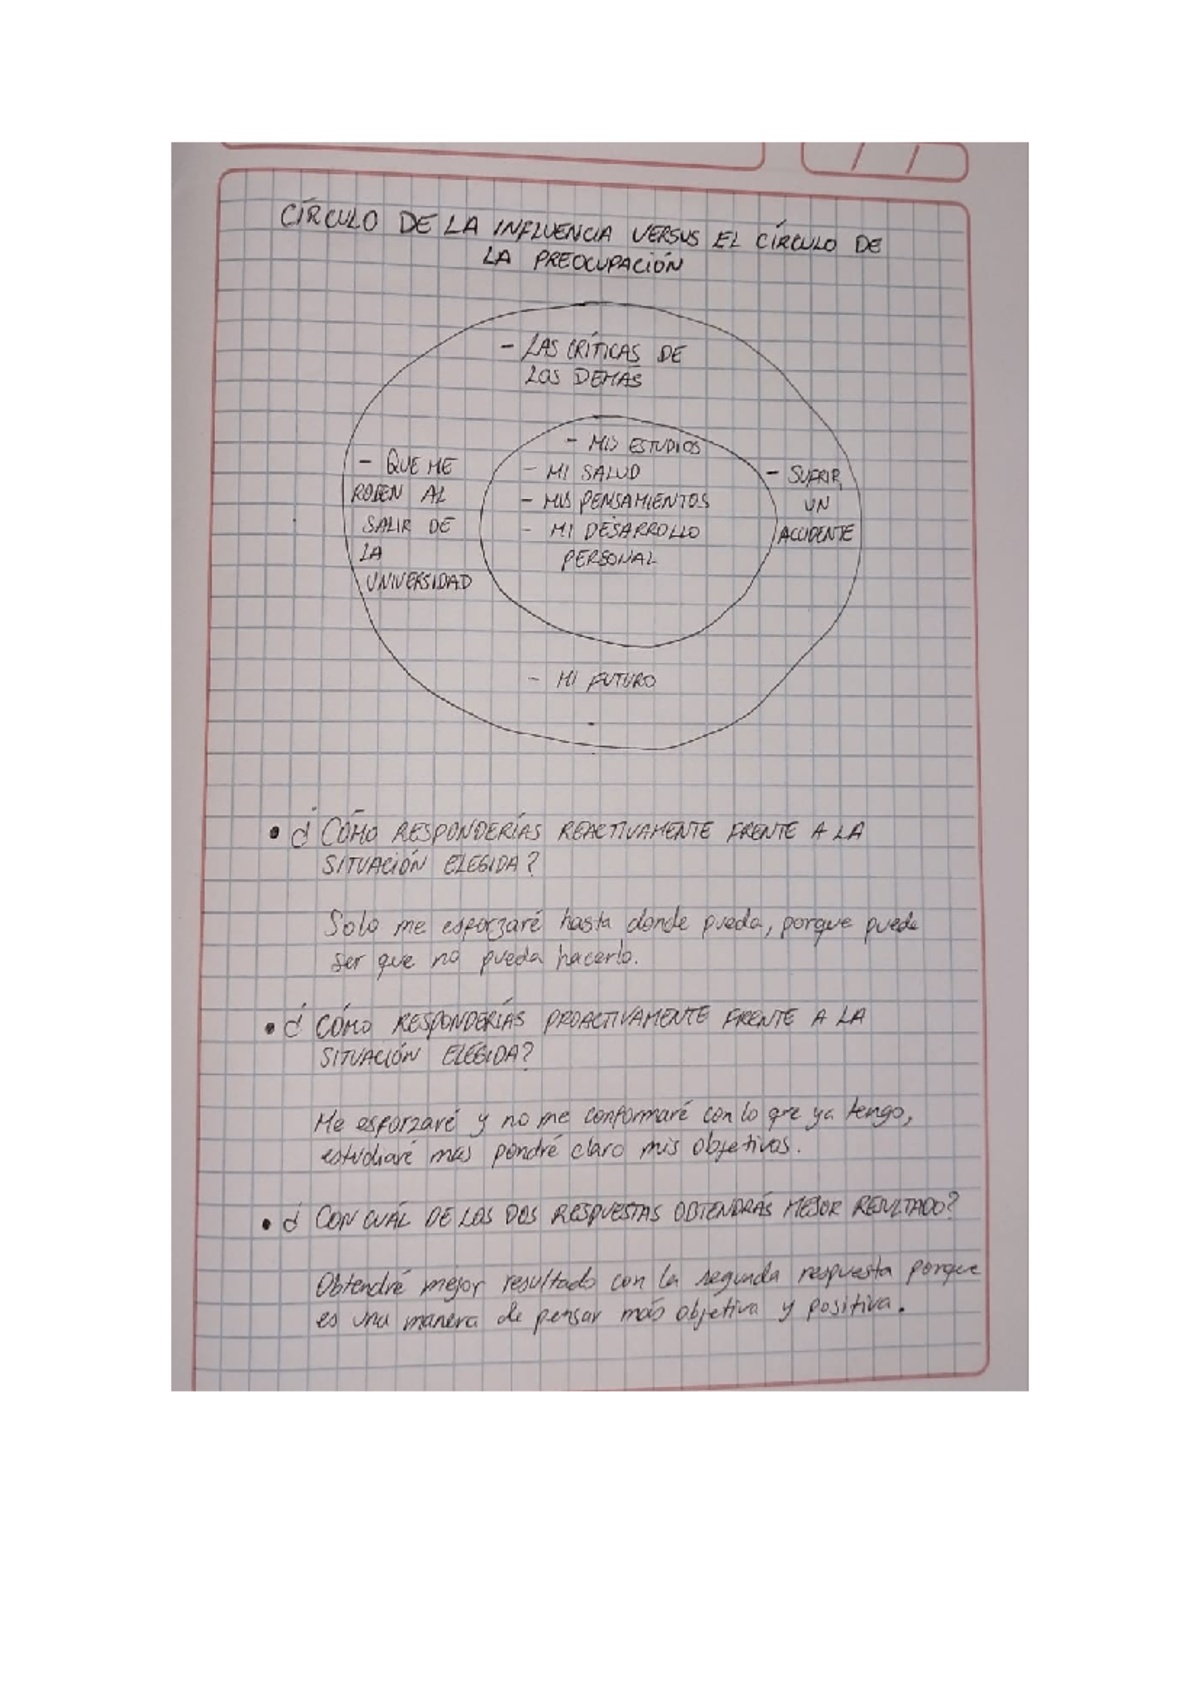 CÍRCULO DE LA INFLUENCIA VERSUS EL CÍRCULO DE
LA PREOCUPACIÓN
- LAS CRÍTICAS DE
LOS DEMÁS
- QUE ME
ROBEN AL
SALIR DE
LA
UNIVERSIDAD
- MIS ESTUDIOS
- MI SALUD
- MIS PENSAMIENTOS
- MI DESARROLLO
PERSONAL
- SUFRIR
UN
ACCIDENTE
- MI FUTURO
• ¿CÓMO RESPONDERÍAS REACTIVAMENTE FRENTE A LA
SITUACIÓN ELEGIDA?
Solo me esforzaré hasta donde pueda, porque puede
ser que no pueda hacerlo.
• ¿CÓMO RESPONDERÍAS PROACTIVAMENTE FRENTE A LA
SITUACIÓN ELEGIDA?
Me esforzaré y no me conformaré con lo que ya tengo,
estudiaré más pondré claro mis objetivos.
• ¿CON CUÁL DE LAS DOS RESPUESTAS OBTENDRÁS MEJOR RESULTADO?
Obtendré mejor resultado con la segunda respuesta porque
es una manera de pensar más objetiva y positiva.